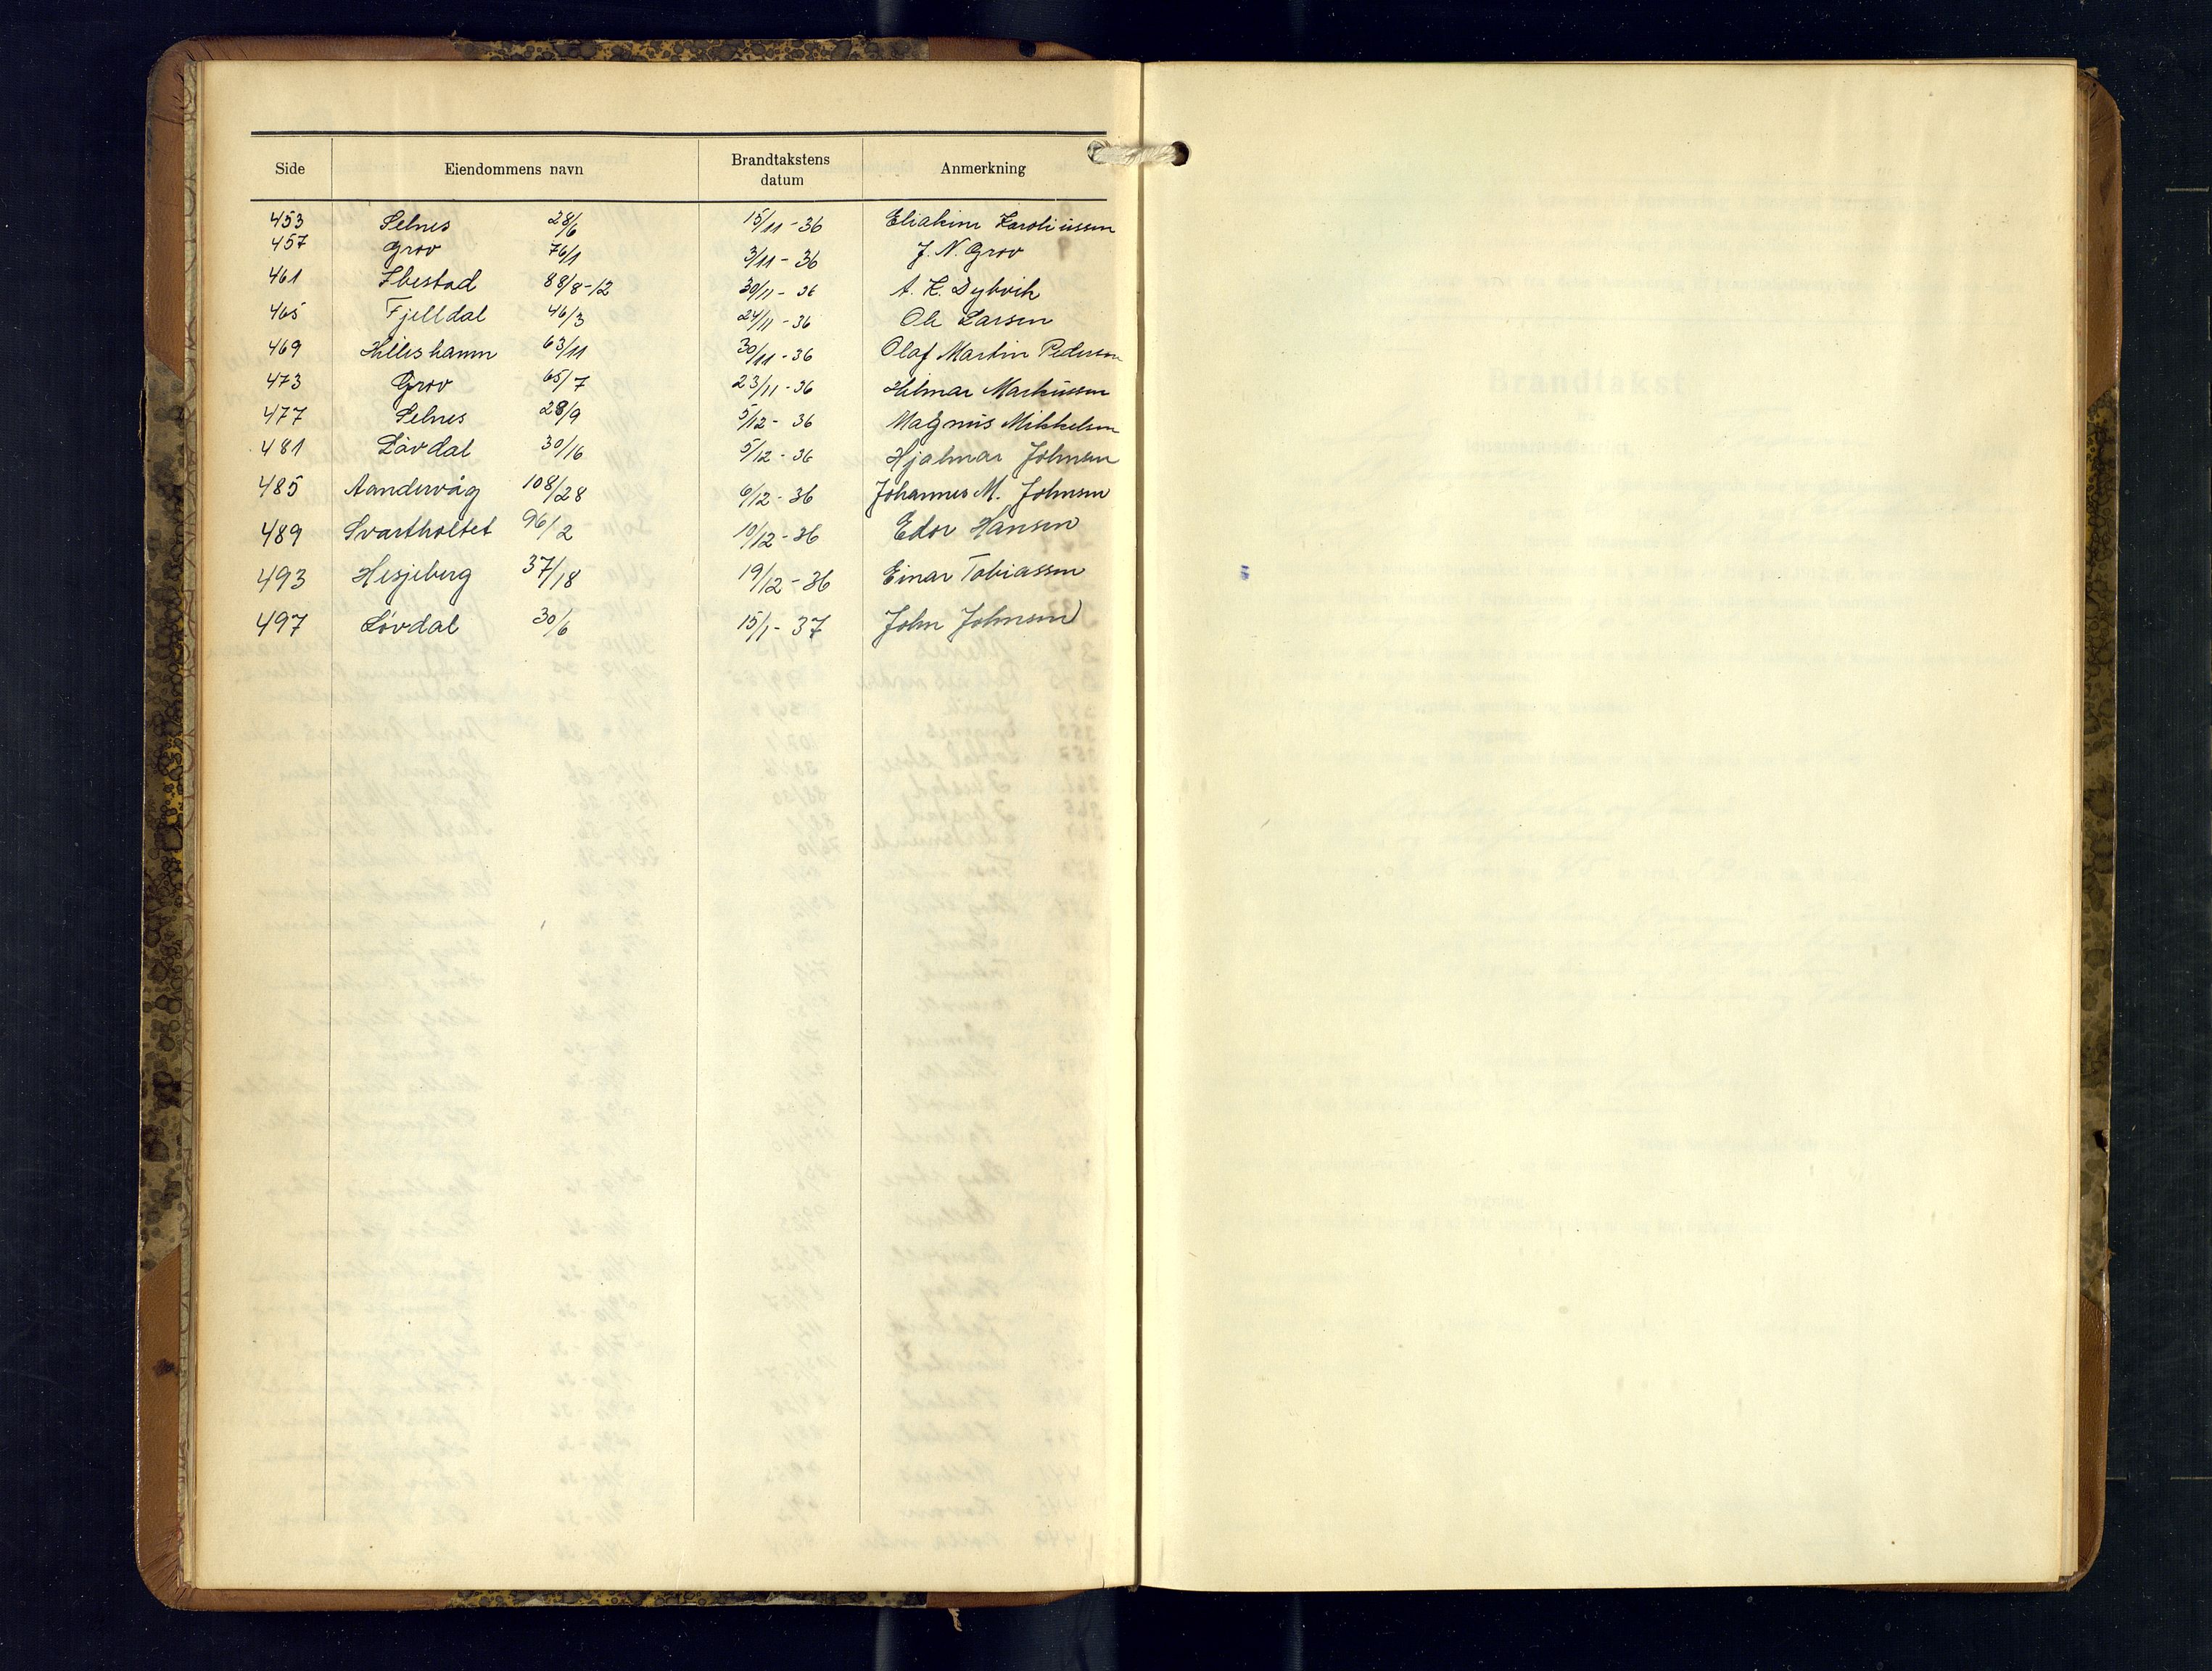 Side Eiendommens navn Brandtakstens datum Anmerkning
453 Selnes 28/6 15/11-36 Eliakim Karoliussen
457 Grov 76/1 3/11-36 J. N. Grov
461 Ibestad 88/8-12 30/11-36 A. K. Dybvik
465 Fjelldal 46/3 24/11-36 Ole Larsen
469 Hilleshamn 63/11 30/11-36 Olaf Martin Pedersen
473 Grov 65/7 23/11-36 Hilmar Markussen
477 Selnes 28/9 5/12-36 Magnus Mikkelsen
481 Lövdal 30/16 5/12-36 Hjalmar Johnsen
485 Aandervåg 108/28 6/12-36 Johannes M. Johnsen
489 Svartholtet 96/2 10/12-36 Edor Hansen
493 Hesjeberg 37/18 19/12-36 Einar Tobiassen
497 Lövdal 30/6 15/1-37 John Johnsen